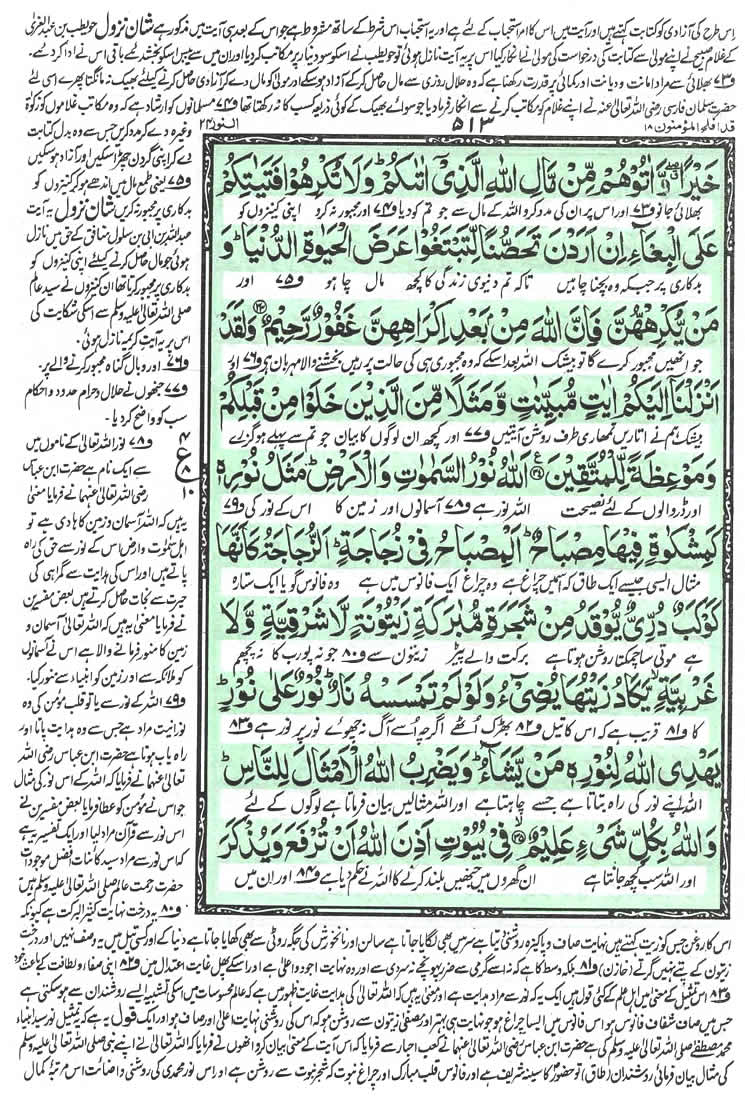 اس طرح کی آزادی کو کتابت کہتے ہیں اور آیت میں اس کا امر استحباب کے لئے ہے اور یہ استحباب اس شرط کے ساتھ مشروط ہے جو اس کے بعد ہی آیت میں مذکور ہے شان نزول حویطب بن عبدالعزیٰ
کے غلام صبیح نے اپنے مولیٰ سے کتابت کی درخواست کی مولیٰ نے انکار کیا اس پر یہ آیت نازل ہوئی تو حویطب نے اس کو سو دینار پر مکاتب کر دیا اور ان میں سے بیس اس کو بخش دئیے باقی اس نے ادا کر دئیے۔
و۷۳ بھلائی سے مراد امانت و دیانت اور کمائی پر قدرت رکھنا ہے کہ وہ حلال روزی سے مال حاصل کر کے آزاد ہو سکے اور مولیٰ کو مال دے کر آزادی حاصل کرنے کیلئے بھیک نہ مانگتا پھرے اسی لئے
حضرت سلمان فارسی رضی اللہ تعالیٰ عنہ نے اپنے غلام کو مکاتب کرنے سے انکار فرما دیا جو سوائے بھیک کے کوئی ذریعہ کسب کا نہ رکھتا تھا و۷۴ مسلمانوں کو ارشاد ہے کہ وہ مکاتب غلاموں کو زکوٰۃ
قد افلح المؤمنون ۱۸
۵۱۳
النور ۲۴
وغیرہ دے کر مدد کریں جس سے وہ بدل کتابت
دے کر اپنی گردن چھڑا سکیں اور آزاد ہو سکیں
و۷۵ یعنی طمع مال میں اندھے ہو کر کنیزوں کو
بدکاری پر مجبور نہ کریں شان نزول یہ آیت
عبداللہ بن ابی بن سلول منافق کے حق میں نازل
ہوئی جو مال حاصل کرنے کیلئے اپنی کنیزوں کو
بدکاری پر مجبور کرتا تھا ان کنیزوں نے سید عالم
صلی اللہ تعالیٰ علیہ وسلم سے اس کی شکایت کی
اس پر یہ آیت کریمہ نازل ہوئی۔
و۷۶ اور وبال گناہ مجبور کرنے والے پر
و۷۷ جنھوں نے حلال و حرام حدود و احکام
سب کو واضح کر دیا۔
و۷۸ نور اللہ تعالیٰ کے ناموں میں
سے ایک نام ہے حضرت ابن عباس
رضی اللہ تعالیٰ عنہما نے فرمایا معنیٰ
یہ ہیں کہ اللہ آسمان و زمین کا ہادی ہے تو
اہل سمٰوٰت و ارض اس کے نور سے حق کی راہ
پاتے ہیں اور اس کی ہدایت سے گمراہی کی
حیرت سے نجات حاصل کرتے ہیں بعض مفسرین
نے فرمایا معنیٰ یہ ہیں کہ اللہ تعالیٰ آسمان و
زمین کا منور فرمانے والا ہے اس نے آسمانوں
کو ملائکہ سے اور زمین کو انبیاء سے منور کیا۔
و۷۹ اللہ کے نور سے یا تو قلب مؤمن کی وہ
نورانیت مراد ہے جس سے وہ ہدایت پاتا اور
راہ یاب ہوتا ہے حضرت ابن عباس رضی اللہ
تعالیٰ عنہما نے فرمایا کہ اللہ کے اس نور کی مثال
جو اس نے مؤمن کو عطا فرمایا بعض مفسرین نے
اس نور سے قرآن مراد لیا اور ایک تفسیر یہ ہے
کہ اس نور سے مراد سید کائنات افضل موجودات
حضرت رحمت عالم صلی اللہ تعالیٰ علیہ وسلم ہیں
و۸۰ یہ درخت نہایت کثیر البرکت ہے کیونکہ
۴
ع
۸
۱۰
خَیْرًا ۖۗ وَّ اٰتُوْهُمْ مِّنْ مَّالِ اللّٰهِ الَّذِیْۤ اٰتٰىكُمْ ؕ وَ لَا تُكْرِهُوْا فَتَیٰتِكُمْ
بھلائی جانو و۷۳ اور اس پر ان کی مدد کرو اللہ کے مال سے جو تم کو دیا و۷۴ اور مجبور نہ کرو اپنی کنیزوں کو
عَلَى الْبِغَآءِ اِنْ اَرَدْنَ تَحَصُّنًا لِّتَبْتَغُوْا عَرَضَ الْحَیٰوةِ الدُّنْیَا ؕ وَ
بدکاری پر جب کہ وہ بچنا چاہیں تاکہ تم دنیوی زندگی کا کچھ مال چاہو و۷۵ اور
مَنْ یُّكْرِهْهُّنَّ فَاِنَّ اللّٰهَ مِنْۢ بَعْدِ اِكْرَاهِهِنَّ غَفُوْرٌ رَّحِیْمٌ ﴿۳۳﴾ وَ لَقَدْ
جو انھیں مجبور کرے گا تو بیشک اللہ بعد اسکے کہ وہ مجبوری ہی کی حالت پر رہیں بخشنے والا مہربان ہے و۷۶ اور
اَنْزَلْنَاۤ اِلَیْكُمْ اٰیٰتٍ مُّبَیِّنٰتٍ وَّ مَثَلًا مِّنَ الَّذِیْنَ خَلَوْا مِنْ قَبْلِكُمْ
بیشک ہم نے اتاریں تمھاری طرف روشن آیتیں و۷۷ اور کچھ ان لوگوں کا بیان جو تم سے پہلے ہو گزرے
وَ مَوْعِظَةً لِّلْمُتَّقِیْنَ ﴿۳۴﴾ اَللّٰهُ نُوْرُ السَّمٰوٰتِ وَ الْاَرْضِ ؕ مَثَلُ نُوْرِهٖ
اور ڈر والوں کے لئے نصیحت اللہ نور ہے و۷۸ آسمانوں اور زمین کا اس کے نور کی و۷۹
كَمِشْكٰوةٍ فِیْهَا مِصْبَاحٌ ؕ اَلْمِصْبَاحُ فِیْ زُجَاجَةٍ ؕ اَلزُّجَاجَةُ كَاَنَّهَا
مثال ایسی جیسے ایک طاق کہ اس میں چراغ ہے وہ چراغ ایک فانوس میں ہے وہ فانوس گویا ایک ستارہ
كَوْكَبٌ دُرِّیٌّ یُّوْقَدُ مِنْ شَجَرَةٍ مُّبٰرَكَةٍ زَیْتُوْنَةٍ لَّا شَرْقِیَّةٍ وَّ لَا
ہے موتی سا چمکتا روشن ہوتا ہے برکت والے پیڑ زیتون سے و۸۰ جو نہ پورب کا نہ پچھم
غَرْبِیَّةٍ ۙ یَّكَادُ زَیْتُهَا یُضِیْٓءُ وَ لَوْ لَمْ تَمْسَسْهُ نَارٌ ؕ نُوْرٌ عَلٰى نُوْرٍ ؕ
کا و۸۱ قریب ہے کہ اس کا تیل و۸۲ بھڑک اُٹھے اگرچہ اُسے آگ نہ چھوئے نور پر نور ہے و۸۳
یَهْدِی اللّٰهُ لِنُوْرِهٖ مَنْ یَّشَآءُ ؕ وَ یَضْرِبُ اللّٰهُ الْاَمْثَالَ لِلنَّاسِ ؕ
اللہ اپنے نور کی راہ بتاتا ہے جسے چاہتا ہے اور اللہ مثالیں بیان فرماتا ہے لوگوں کے لئے
وَ اللّٰهُ بِكُلِّ شَیْءٍ عَلِیْمٌ ﴿۳۵﴾ فِیْ بُیُوْتٍ اَذِنَ اللّٰهُ اَنْ تُرْفَعَ وَ یُذْكَرَ
اور اللہ سب کچھ جانتا ہے ان گھروں میں جنھیں بلند کرنے کا اللہ نے حکم دیا ہے و۸۴ اور ان میں
اس کا روغن جس کو زیت کہتے ہیں نہایت صاف و پاکیزہ روشنی دیتا ہے سر میں بھی لگایا جاتا ہے سالن اور نانخورش کی جگہ روٹی سے بھی کھایا جاتا ہے دنیا کے اور کسی تیل میں یہ وصف نہیں اور درخت
زیتون کے پتے نہیں گرتے (خازن) و۸۱ بلکہ وسط کا ہے کہ نہ اسے گرمی سے ضرر پہونچے نہ سردی سے اور وہ نہایت اجود و اعلیٰ ہے اور اسکے پھل غایت اعتدال میں و۸۲ اپنی صفا و لطافت کے باعث خود
و۸۳ اس تمثیل کے معنیٰ میں اہل علم کے کئی قول ہیں ایک یہ کہ نور سے مراد ہدایت ہے اور معنیٰ یہ ہیں کہ اللہ تعالیٰ کی ہدایت غایت ظہور میں ہے کہ عالم محسوسات میں اس کی تشبیہ ایسے روشندان سے ہو سکتی ہے
جس میں صاف شفاف فانوس ہو اس فانوس میں ایسا چراغ ہو جو نہایت ہی بہتر اور مصفی زیتون سے روشن ہو کہ اس کی روشنی نہایت اعلیٰ اور صاف ہو اور ایک قول یہ ہے کہ یہ تمثیل نور سید انبیاء
محمد مصطفےٰ صلی اللہ تعالیٰ علیہ وسلم کی ہے حضرت ابن عباس رضی اللہ تعالیٰ عنہما نے کعب احبار سے فرمایا کہ اس آیت کے معنیٰ بیان کرو انھوں نے فرمایا کہ اللہ تعالیٰ نے اپنے نبی صلی اللہ تعالیٰ علیہ وسلم
کی مثال بیان فرمائی روشندان (طاق) تو حضور کا سینہ شریف ہے اور فانوس قلب مبارک اور چراغ نبوت کہ شجر نبوت سے روشن ہے اور اس نور محمدی کی روشنی و اضائت اس مرتبۂ کمال